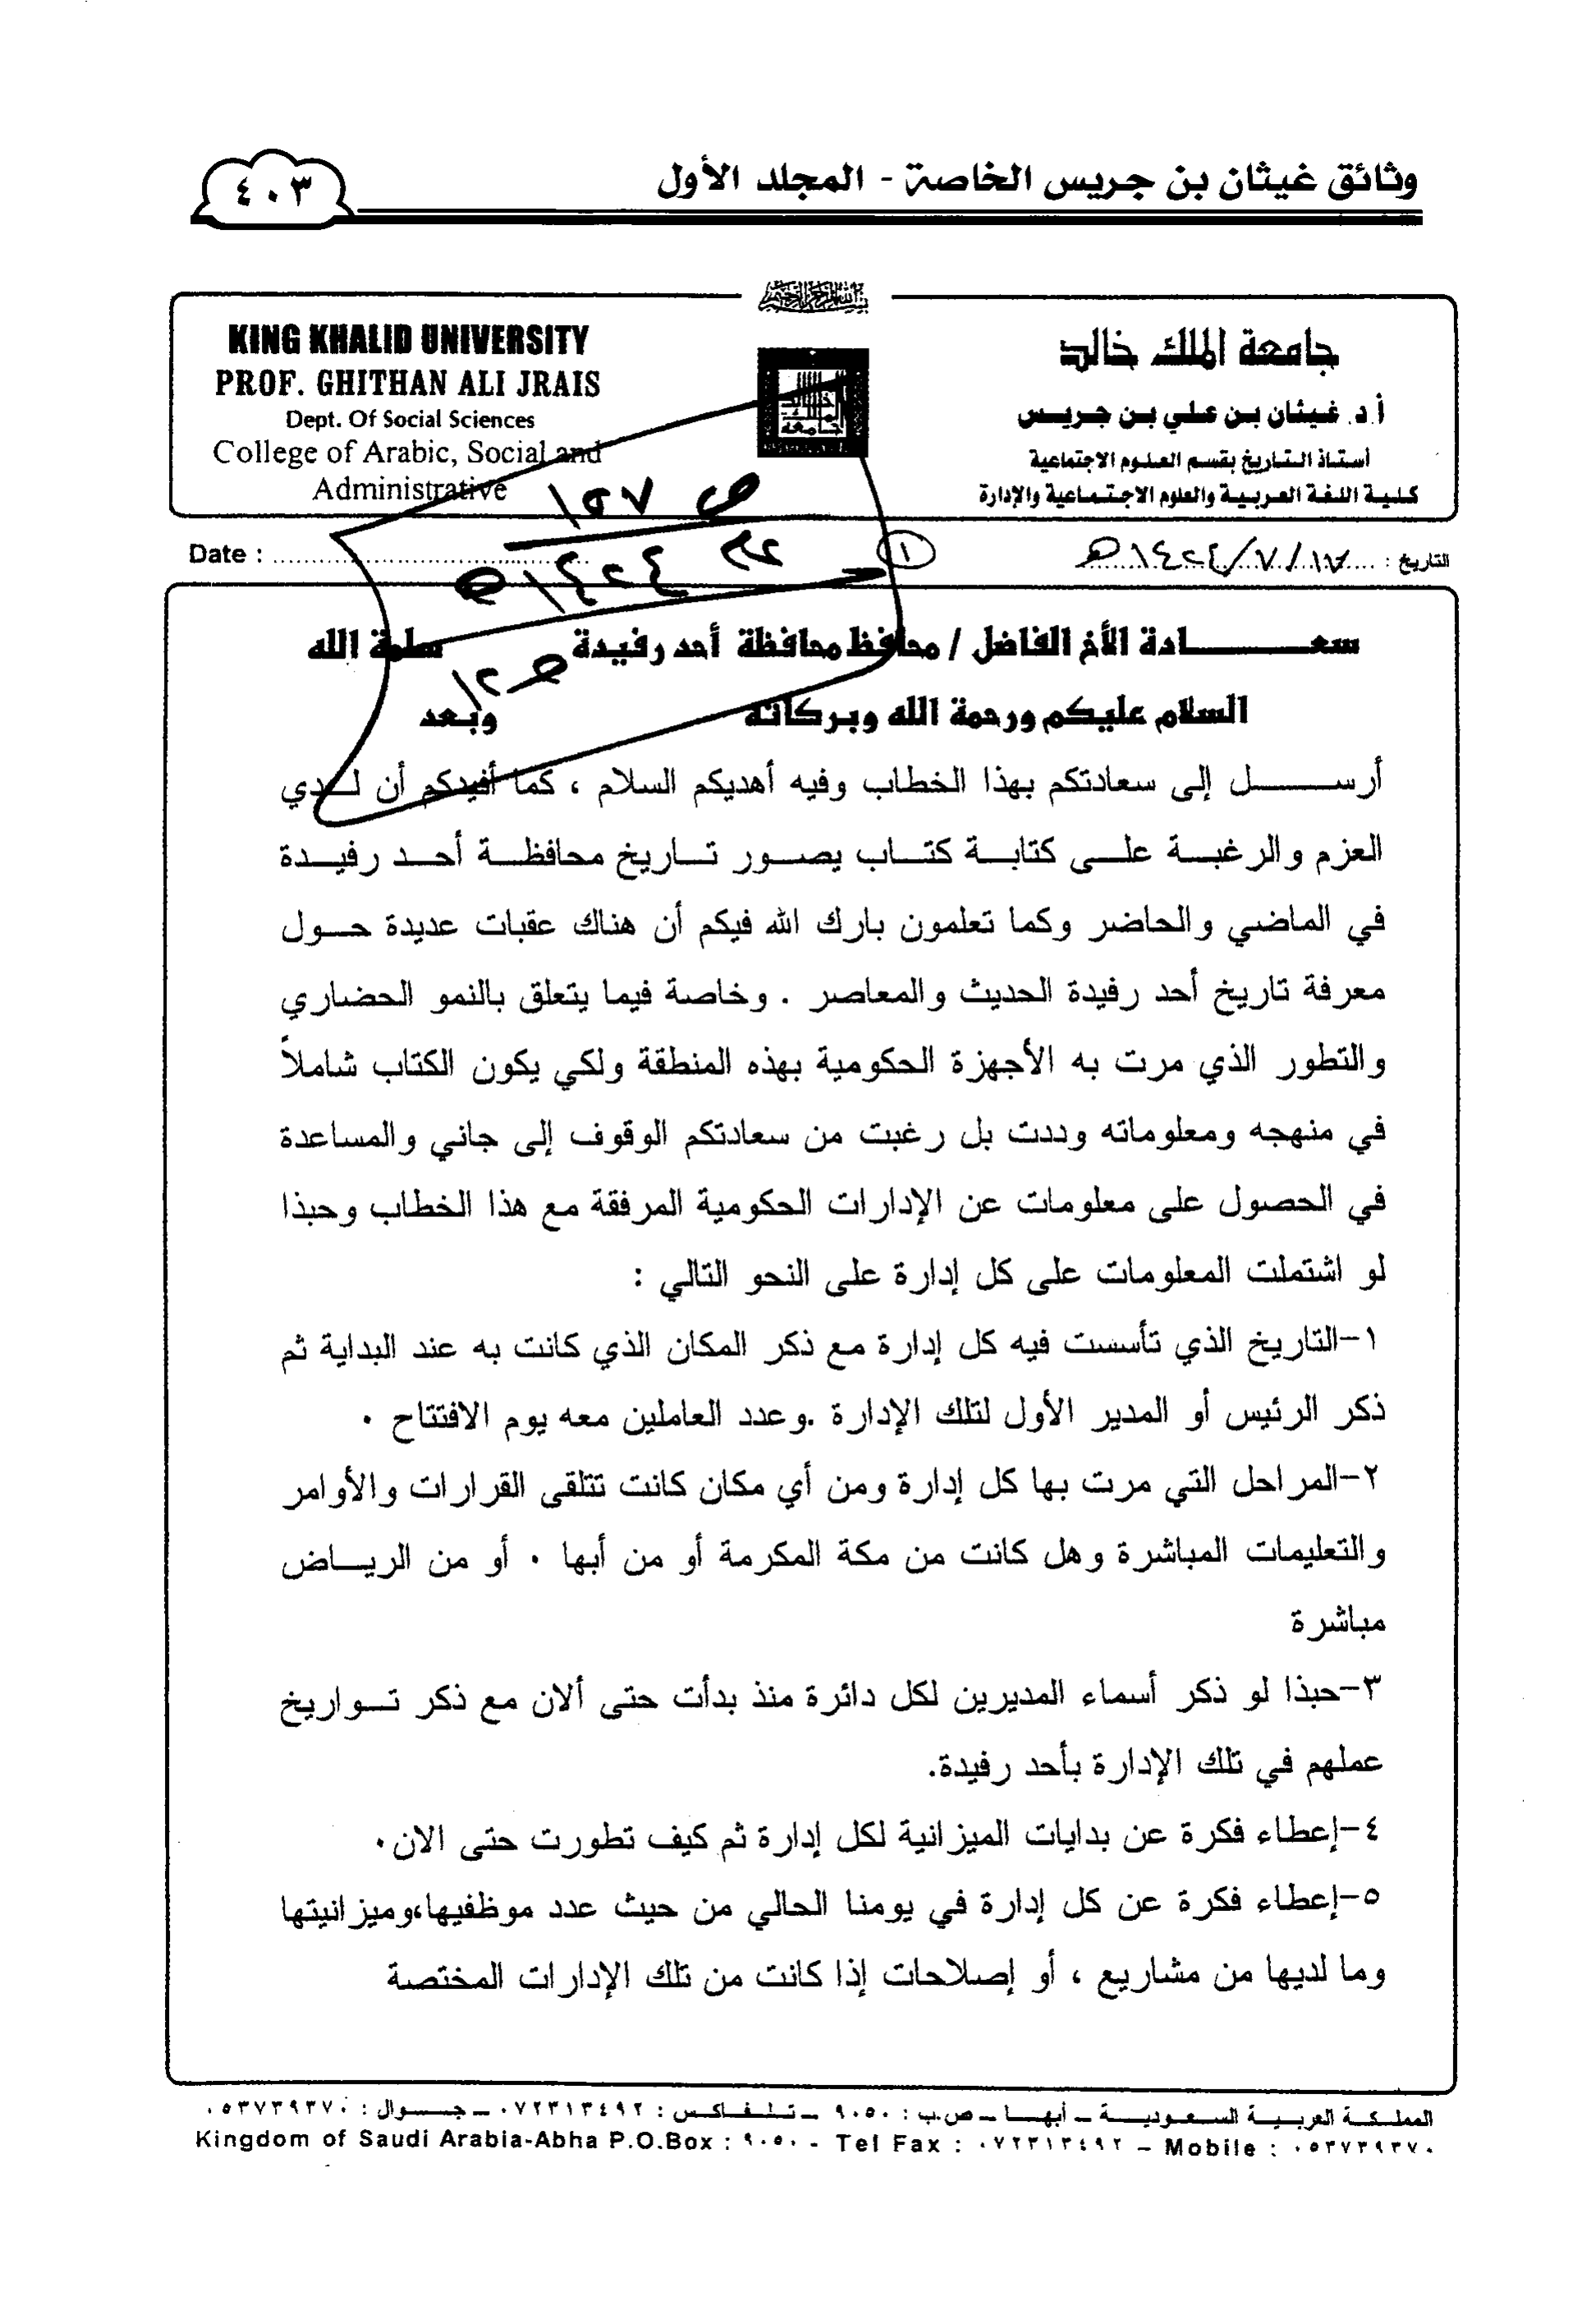 وثائق غيثان بن جريس الخاصة - المجلد الأول
٤٠٣
جامعة الملك خالد
أ.د. غيثان بن علي بن جريس
أستاذ التاريخ بقسم العلوم الاجتماعية
كلية اللغة العربية والعلوم الاجتماعية والإدارة
KING KHALID UNIVERSITY
PROF. GHITHAN ALI JRAIS
Dept. Of Social Sciences
College of Arabic, Social and
Administrative
ص ١٥٧
١
Date :
سعـــــــــادة الأخ الفاضل / محافظ محافظة أحد رفيدة سلمة الله
السلام عليكم ورحمة الله وبركاته وبعد
أرســـــل إلى سعادتكم بهذا الخطاب وفيه أهديكم السلام ، كما أفيدكم أن لـــدي
العزم والرغبـــة علـــى كتابـــة كتـــاب يصـــور تـــاريخ محافظـــة أحـــد رفيـــدة
في الماضي والحاضر وكما تعلمون بارك الله فيكم أن هناك عقبات عديدة حـــول
معرفة تاريخ أحد رفيدة الحديث والمعاصر . وخاصة فيما يتعلق بالنمو الحضاري
والتطور الذي مرت به الأجهزة الحكومية بهذه المنطقة ولكي يكون الكتاب شاملاً
في منهجه ومعلوماته وددت بل رغبت من سعادتكم الوقوف إلى جاني والمساعدة
في الحصول على معلومات عن الإدارات الحكومية المرفقة مع هذا الخطاب وحبذا
لو اشتملت المعلومات على كل إدارة على النحو التالي :
١-التاريخ الذي تأسست فيه كل إدارة مع ذكر المكان الذي كانت به عند البداية ثم
ذكر الرئيس أو المدير الأول لتلك الإدارة .وعدد العاملين معه يوم الافتتاح ٠
٢-المراحل التي مرت بها كل إدارة ومن أي مكان كانت تتلقى القرارات والأوامر
والتعليمات المباشرة وهل كانت من مكة المكرمة أو من أبها ٠ أو من الريـــاض
مباشرة
٣-حبذا لو ذكر أسماء المديرين لكل دائرة منذ بدأت حتى ألان مع ذكر تـــواريخ
عملهم في تلك الإدارة بأحد رفيدة.
٤-إعطاء فكرة عن بدايات الميزانية لكل إدارة ثم كيف تطورت حتى الان٠
٥-إعطاء فكرة عن كل إدارة في يومنا الحالي من حيث عدد موظفيها،وميزانيتها
وما لديها من مشاريع ، أو إصلاحات إذا كانت من تلك الإدارات المختصة
المملكـة العربيـة السعوديـة – أبهـا – ص.ب : ٩٠٥٠ – تلـفـاكـس : ٠٧٢٣١٣٤٩٢ – جـوال : ٠٥٣٧٣٩٣٧٠
Kingdom of Saudi Arabia-Abha P.O.Box : ٩٠٥٠ - Tel Fax : ٠٧٢٣١٣٤٩٢ – Mobile : ٠٥٣٧٣٩٣٧٠